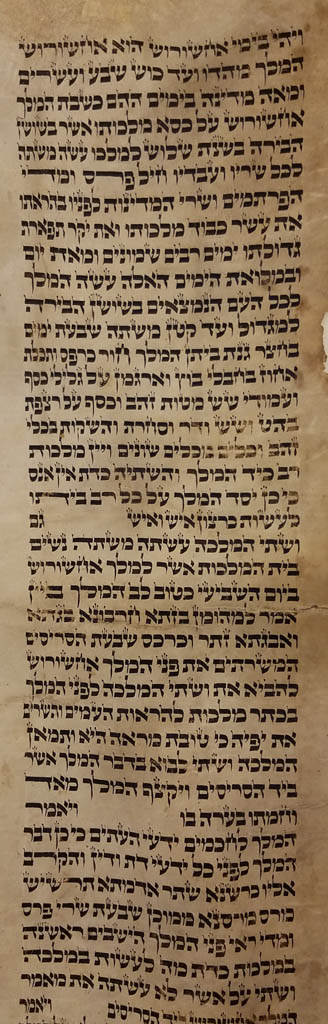 ויהי בימי אחשורוש הוא אחשורוש
המלך מהדו ועד כוש שבע ועשרים
ומאה מדינה בימים ההם כשבת המלך
אחשורוש על כסא מלכותו אשר בשושן
הבירה בשנת שלוש למלכו עשה משתה
לכל שריו ועבדיו חיל פרס ומדי
הפרתמים ושרי המדינות לפניו בהראתו
את עשר כבוד מלכותו ואת יקר תפארת
גדולתו ימים רבים שמונים ומאת יום
ובמלואת הימים האלה עשה המלך
לכל העם הנמצאים בשושן הבירה
למגדול ועד קטן משתה שבעת ימים
בחצר גנת ביתן המלך חור כרפס ותכלת
אחוז בחבלי בוץ וארגמן על גלילי כסף
ועמודי שש מטות זהב וכסף על רצפת
בהט ושש ודר וסחרת והשקות בכלי
זהב וכלים מכלים שונים ויין מלכות
רב כיד המלך והשתיה כדת אין אנס
כי כן יסד המלך על כל רב ביתו
לעשות כרצון איש ואיש גם
ושתי המלכה עשתה משתה נשים
בית המלכות אשר למלך אחשורוש
ביום השביעי כטוב לב המלך ביין
אמר למהומן בזתא חרבונא בגתא
ואבגתא זתר וכרכס שבעת הסריסים
המשרתים את פני המלך אחשורוש
להביא את ושתי המלכה לפני המלך
בכתר מלכות להראות העמים והשרים
את יפיה כי טובת מראה היא ותמאן
המלכה ושתי לבוא בדבר המלך אשר
ביד הסריסים ויקצף המלך מאד
וחמתו בערה בו ויאמר
המלך לחכמים ידעי העתים כי כן דבר
המלך לפני כל ידעי דת ודין והקרב
אליו כרשנא שתר אדמתא תרשיש
מרס מרסנא ממוכן שבעת שרי פרס
ומדי ראי פני המלך הישבים ראשנה
במלכות כדת מה לעשות במלכה
ושתי על אשר לא עשתה את מאמר
המלך אחשורוש ביד הסריסים ויאמר